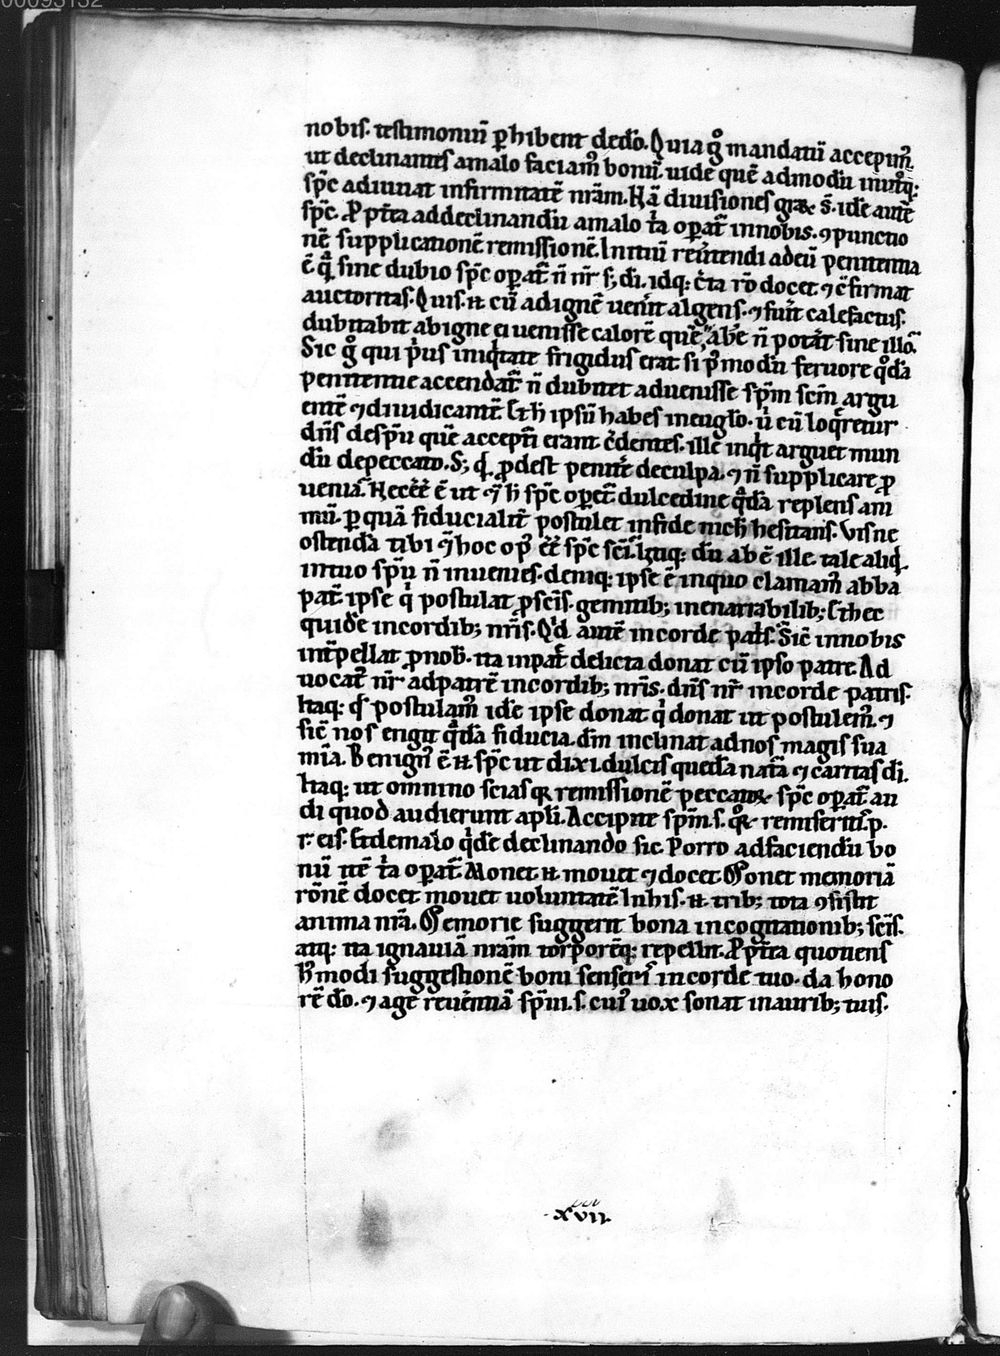 00095132
nobis. testimoniū ꝑhibent dedō. Quia gͦ mandatū accepimꝰ
ut declinantes amalo faciamꝰ bonū. uide quē admodū iniutͦq:
sp̄c adiuuat infirmitatē nrām. Nā diuisiones gr̄aꝝ s̄. idē autē
sp̄c. Ꝓpt̄ea addeclinandū amalo t̄a oꝑat̄ innobis. ꝯpunctio
nē supplicationē remissionē. Initiū reūtendi adeū penitentia
ē qͣ sine dubio sp̄c oꝑat̄ n̄ nr̄ s; di. idq: c̄ta rō docet ⁊ ꝯfirmat
auctoritas. Quis. n̄ cū adignē uen̄it algens. ⁊ fu̅it calefactus.
dubitabit abigne ei uenisse calorē quē habe n̄ potāt sine illo.
Sic gͦ qui pͥus iniqͥtate frigidus erat si pͦmodū feruore qͦdā
penitentie accendat̄ n̄ dubitet aduenisse sp̄m scm̄ argu
entē ⁊ diiudicantē Et h̄ ipsū habes ineuglō. ū cū loqͤretur
dn̄s desp̄u quē accept̄i erant c̄dentes. ille inqͥt arguet mun
dū depeccato. S; qͥ ꝓdest penit̄e deculpa. ⁊ n̄ supplicare ꝓ
uenia. Necē̄e ē ut ⁊ h̄ sp̄c oꝑet̄ dulcedine qͣdā replens ani
mū. ꝑ quā fiducialit̄ postulet infide nich hesitans. Visne
ostendā tibi ⁊ hoc opꝰ ēe sp̄c sc̄i. Itaq: dū abē ille. tale aliqͥ
intuo sp̄u n̄ inuenies. deniq: ipse ē inquo clamamꝰ abba
pat̄. ipse qͥ postulat ꝓscīs. gemitib; inenarrabilib; Et hec
quidē incordib; nr̄is. Qͥd autē incorde pat̄s. Sic̄ innobis
int̄pellat ꝓnob̄. ita inpat̄e delicta donat cū ipso patre. Ad
uocat̄ nr̄ adpatrē incordib; nr̄is. dn̄s nr̄ incorde patris.
Itaq: qͥ postulamꝰ idē ipse donat qͥ donat ut postulemꝰ. ⁊
sic̄ nos erigit qͣdā fiducia. dm̄ inclinat adnos magis sua
mīa. Benignꝰ ē n̄ sp̄c ut dixi. dulcis quedā natā ⁊ caritas di.
Itaq: ut omnino scias qꝫ remissionē peccatoꝝ sp̄c oꝑat̄ au
di quod audierunt apli. Accipite sp̄m. s. qͦꝝ remiseritis. p.
r. eis. Et demalo qͥdē declinando sic. Porro adfaciendū bo
nū itē t̄a oꝑat̄. Monet n̄ mouet ⁊ docet. Monet memoriā
rōnē docet mouet uoluntatē Inhis. n̄ trib; tota ꝯsistit
anima nr̄a. Memorie suggerit bona incogitationib; scīs.
atq: ita ignauiā nrām torporēq: repellit. Ꝓpt̄ea quotiens
hꝰmodi suggestionē boni senseris incorde tuo. da hono
rē dō. ⁊ age reuēntiā sp̄m. s. cuiꝰ uox sonat inaurib; tuis.
.xvii.